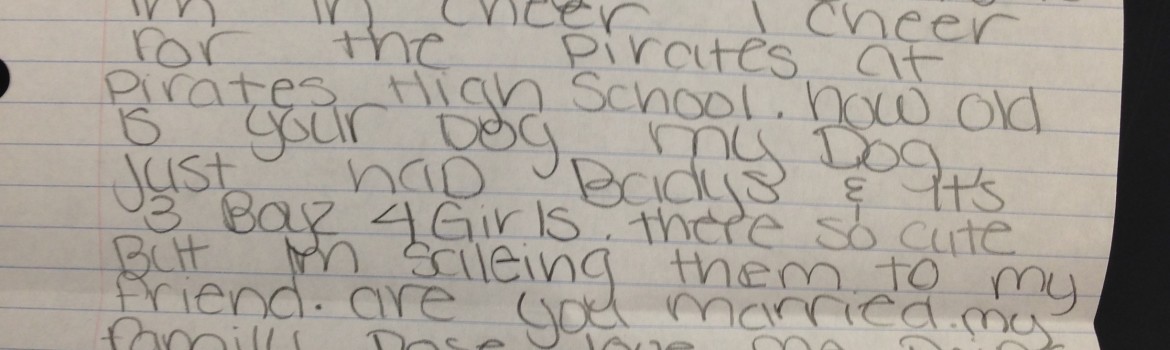 in cheer I cheer
for the pirates at
pirates High School. how old
is your Dog my Dog
just had Badys & It's
3 Boyz 4 Girls. there so cute
But Im salleing them to my
friend. are you married. my